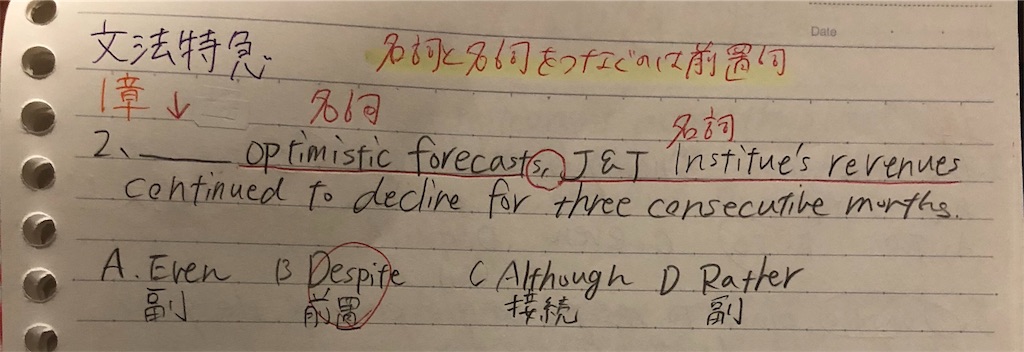 Date
文法特急
名詞と名詞をつなぐのは前置詞
1章 ↓
名詞
名詞
2、____ optimistic forecasts, J&J Institue's revenues
continued to decline for three consecutive months.
A. Even B Despite C Although D Rather
副 前置 接続 副